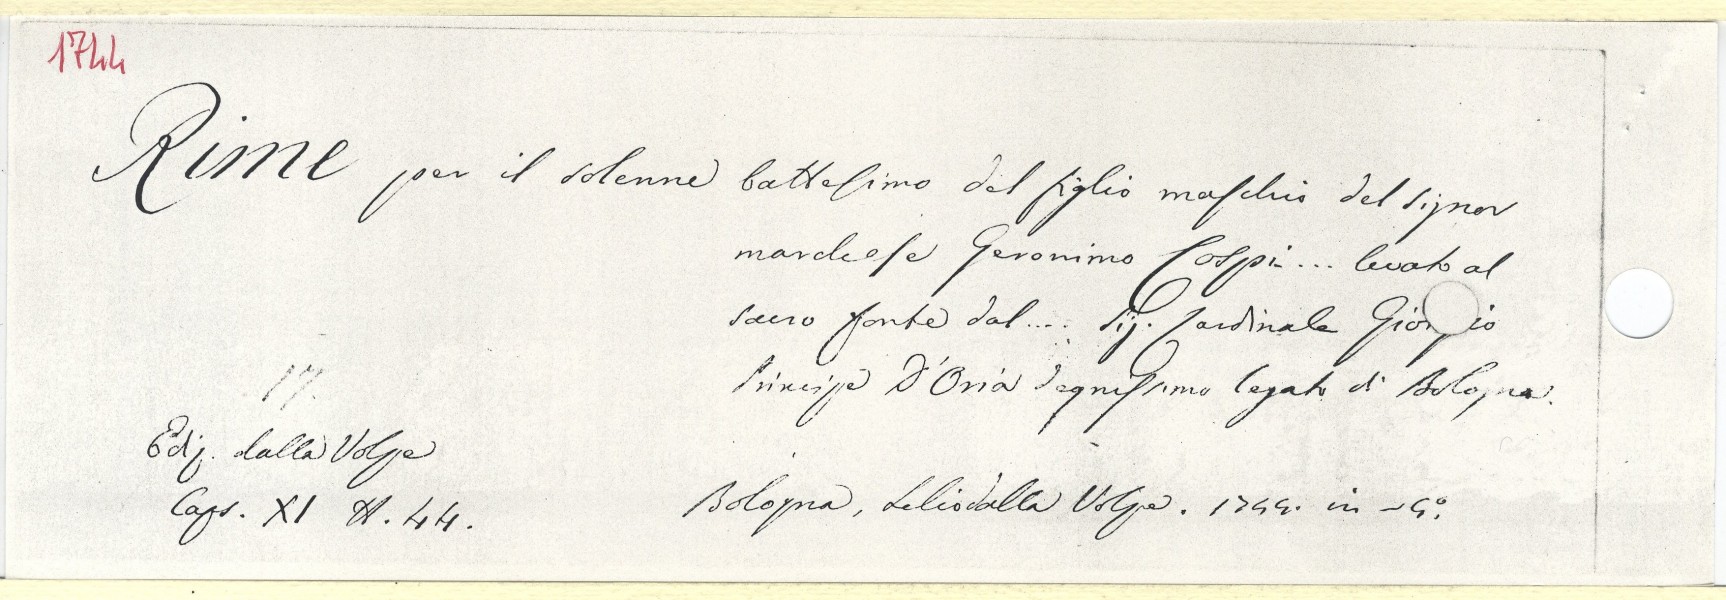 1744
Rime per il solenne battesimo del figlio maschio del signor
marchese Geronimo Cospi... levato al
sacro fonte dal.... Sig. Cardinale Giorgio
Principe D'Oria degnissimo legato di Bologna.
17.
Ediz. dalla Volpe
Caps. XI N. 44.
Bologna, Lelio dalla Volpe. 1744. in -4°.